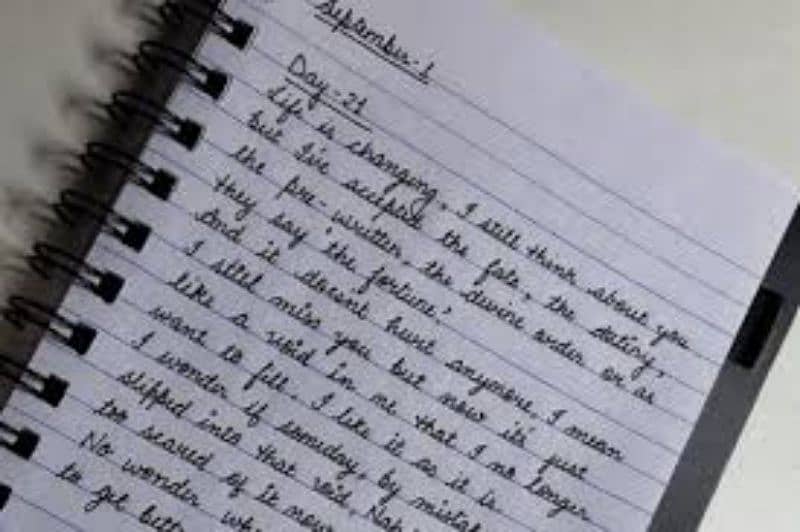 September-1
Day-21
Life is changing. I still think about you
but I've accepted the fate, the destiny,
the pre-written, the divine order or as
they say "the fortune".
And it doesn't hurt anymore. I mean
I still miss you but now it's just
like a void in me that I no longer
want to fill. I like it as it is.
I wonder if someday, by mistake
slipped into that void. Nah
too scared of it now
No wonder
to get